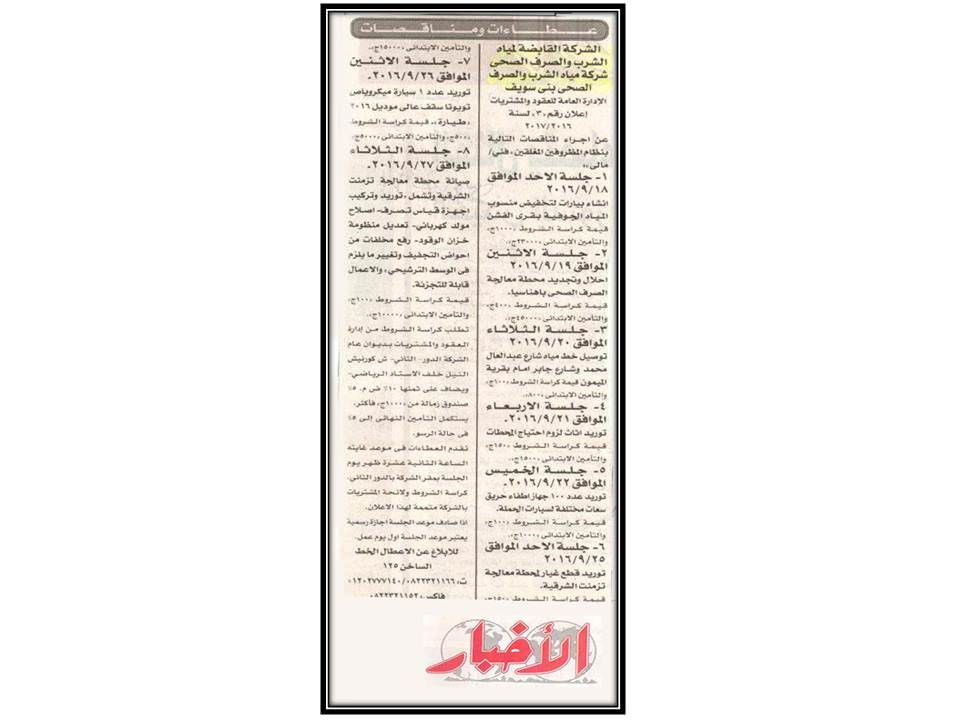 عطاءات ومناقصات
الشركة القابضة لمياه
الشرب والصرف الصحى
شركة مياه الشرب والصرف
الصحى ببنى سويف
الادارة العامة للعقود والمشتريات
إعلان رقم ٣٠ لسنة
٢٠١٧/٢٠١٦
عن اجراء المناقصات التالية
بنظام المظروفين المغلقين، فنى/
مالى،،
١- جلسة الاحد الموافق
٢٠١٦/٩/١٨
انشاء بيارات لتخفيض منسوب
المياه الجوفية بقرى الفشن
قيمة كراسة الشروط ١٠٠٠ج،
والتأمين الابتدائى ٢٣٠٠٠ج،.
٢- جلسة الاثنين
الموافق ٢٠١٦/٩/١٩
احلال وتجديد محطة معالجة
الصرف الصحى باهناسيا.
قيمة كراسة الشروط ٤٠٠ج،
والتأمين الابتدائى ٤٥٠٠٠ج،.
٣- جلسة الثلاثاء
الموافق ٢٠١٦/٩/٢٠
توصيل خط مياه شارع عبدالعال
محمد وشارع جابر امام بقرية
الميمون قيمة كراسة الشروط ١٠٠ج،
والتأمين الابتدائى ٨٠٠،
٤- جلسة الاربعاء
الموافق ٢٠١٦/٩/٢١
توريد اثاث لزوم احتياج المحطات
قيمة كراسة الشروط ١٥٠ج،
والتأمين الابتدائى ١٥٠٠ج،.
٥- جلسة الخميس
الموافق ٢٠١٦/٩/٢٢
توريد عدد ١٠٠ جهاز اطفاء حريق
سعات مختلفة لسيارات الحملة.
قيمة كراسة الشروط ١٠٠ج،
والتأمين الابتدائى ١٠٠٠ج،.
٦- جلسة الاحد الموافق
٢٠١٦/٩/٢٥
توريد قطع غيار لمحطة معالجة
تزمنت الشرقية.
قيمة كراسة الشروط ١٥٠٠ج،
والتأمين الابتدائى ١٥٠٠٠ج،.
٧- جلسة الاثنين
الموافق ٢٠١٦/٩/٢٦
توريد عدد ١ سيارة ميكروباص
تويوتا سقف عالى موديل ٢٠١٦
«طيارة»، قيمة كراسة الشروط
٥٠٠ج، والتأمين الابتدائى ٥٠٠٠ج،.
٨- جلسة الثلاثاء
الموافق ٢٠١٦/٩/٢٧
صيانة محطة معالجة تزمنت
الشرقية وتشمل، توريد وتركيب
اجهزة قياس تصرف- اصلاح
مولد كهربائى- تعديل منظومة
خزان الوقود- رفع مخلفات من
احواض التجفيف وتغيير ما يلزم
فى الوسط الترشيحى، والاعمال
قابلة للتجزئة.
قيمة كراسة الشروط ١٠٠٠ج،
والتأمين الابتدائى ١٠٠٠٠ج،.
تطلب كراسة الشروط من إدارة
العقود والمشتريات بديوان عام
الشركة الدور- الثانى- ش كورنيش
النيل خلف الاستاد الرياضى-
ويضاف على ثمنها ١٠٪ ض م، ٥٪
صندوق زمالة من ١٠٠٠ج، فأكثر.
يستكمل التأمين النهائى إلى ٥٪
فى حالة الرسو.
تقدم العطاءات فى موعد غايته
الساعة الثانية عشرة ظهر يوم
الجلسة بمقر الشركة بالدور الثانى.
كراسة الشروط ولائحة المشتريات
بالشركة متممة لهذا الاعلان.
اذا صادف موعد الجلسة اجازة رسمية
يعتبر موعد الجلسة اول يوم عمل.
للابلاغ عن الاعطال الخط
الساخن ١٢٥
ت: ٠٨٢٢٣٢١١٦٦/٠١٢٠٢٧٧٧١٤٠
فاكس: ٠٨٢٢٣٢١١٥٢
الأخبار